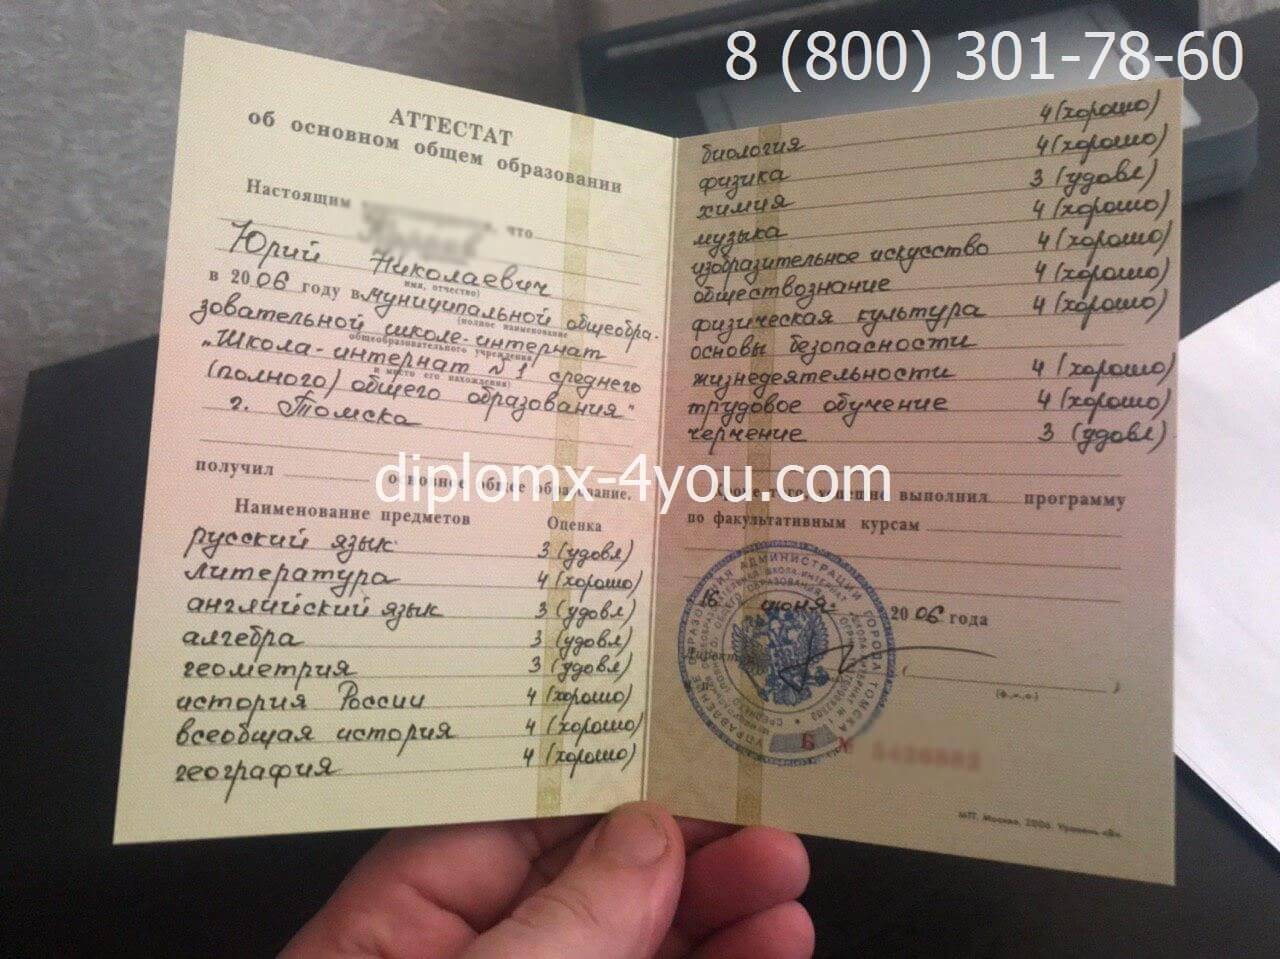 8 (800) 301-78-60
АТТЕСТАТ
об основном общем образовании
Настоящим что
Юрий Николаевич
(имя, отчество)
в 2006 году в муниципальной общеобра-
(полное наименование
зовательной школе-интернат
общеобразовательного учреждения
"Школа-интернат №1 среднего
и место его нахождения)
(полного) общего образования"
г. Томска
получил
основное общее образование.
Наименование предметов Оценка
русский язык 3 (удовл)
литература 4 (хорошо)
английский язык 3 (удовл)
алгебра 3 (удовл)
геометрия 3 (удовл)
история России 4 (хорошо)
всеобщая история 4 (хорошо)
география 4 (хорошо)
биология 4 (хорошо)
физика 4 (хорошо)
химия 3 (удовл)
музыка 4 (хорошо)
изобразительное искусство 4 (хорошо)
обществознание 4 (хорошо)
физическая культура 4 (хорошо)
основы безопасности
жизнедеятельности 4 (хорошо)
трудовое обучение 4 (хорошо)
черчение 3 (удовл)
diplomx-4you.com
Кроме того, успешно выполнил программу
по факультативным курсам
июня 2006 года
Директор
(ф.и.о)
УПРАВЛЕНИЕ ОБРАЗОВАНИЯ АДМИНИСТРАЦИИ ГОРОДА ТОМСКА
Б №
МПГ. Москва, 2006. Уровень «В».